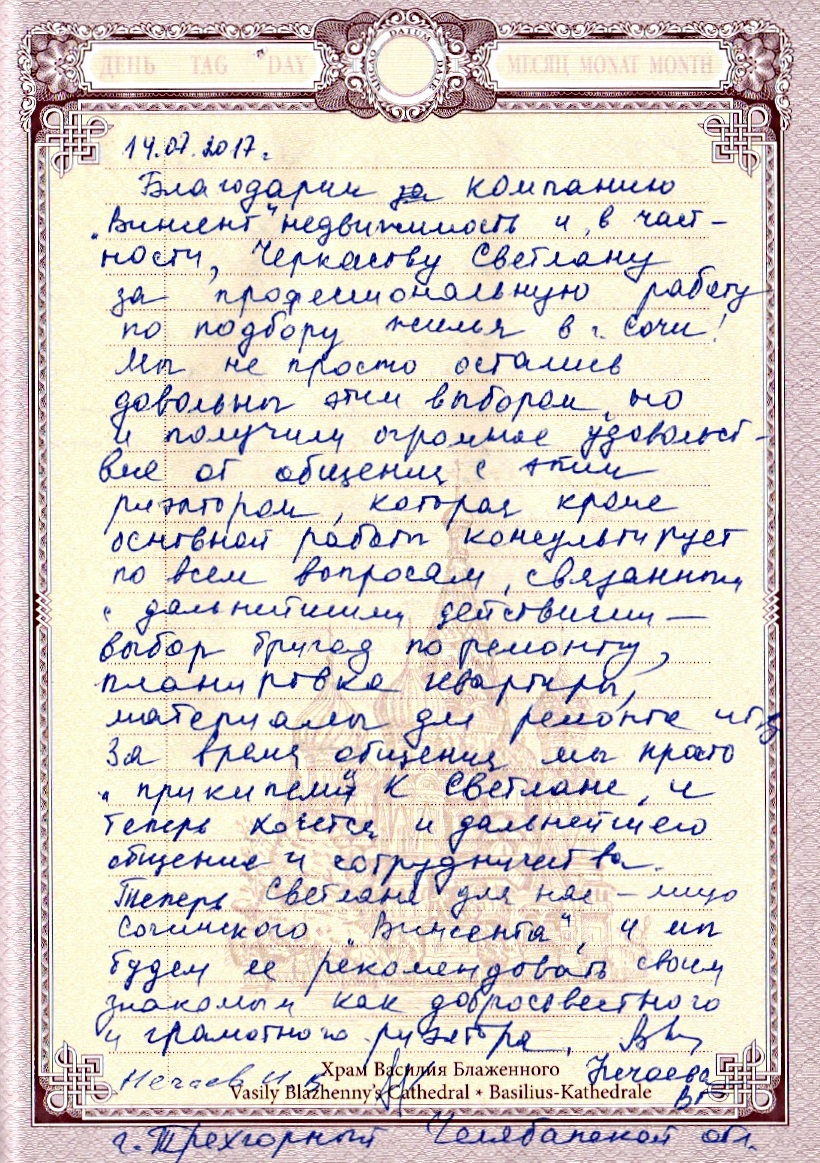 ДЕНЬ TAG DAY
DATUM DATE
МЕСЯЦ MONAT MONTH
14.07.2017г.
Благодарим за компанию
"Винсент" недвижимость и, в част-
ности, Черкасову Светлану
за професиональную работу
по подбору жилья в г. Сочи!
Мы не просто остались
довольны этим выбором, но
и получили огромное удовольст-
вие от общения с этим
риэлтором, которая кроме
основной работы консультирует
по всем вопросам, связанным
с дальнейшими действиями —
выбор бригад по ремонту,
планировка квартиры,
материалы для ремонта и т.д.
За время общения мы просто
"прикипели" к Светлане, и
теперь хочется и дальнейшего
общения и сотрудничества.
Теперь Светлана для нас – лицо
Сочинского "Винсента", и мы
будем ее рекомендовать своим
знакомым как добросовестного
и грамотного риэлтора.
Нечаев И.В. Нечаева
Храм Василия Блаженного
Vasily Blazhenny's Cathedral • Basilius-Kathedrale
г. Трехгорный Челябинской обл.